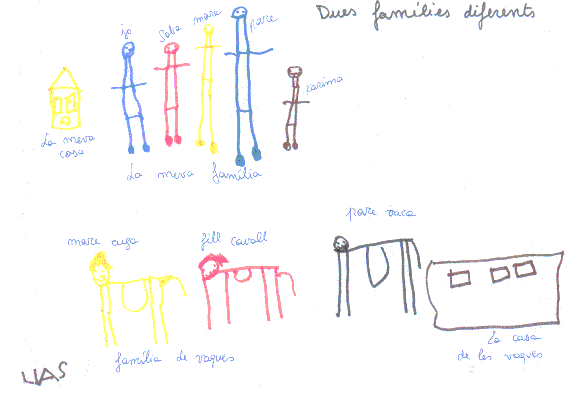 Dues famílies diferents
jo
Saba
mare
pare
Karima
La meva
casa
La meva família
mare euga
fill cavall
pare vaca
família de vaques
La casa
de les vaques
LIAS